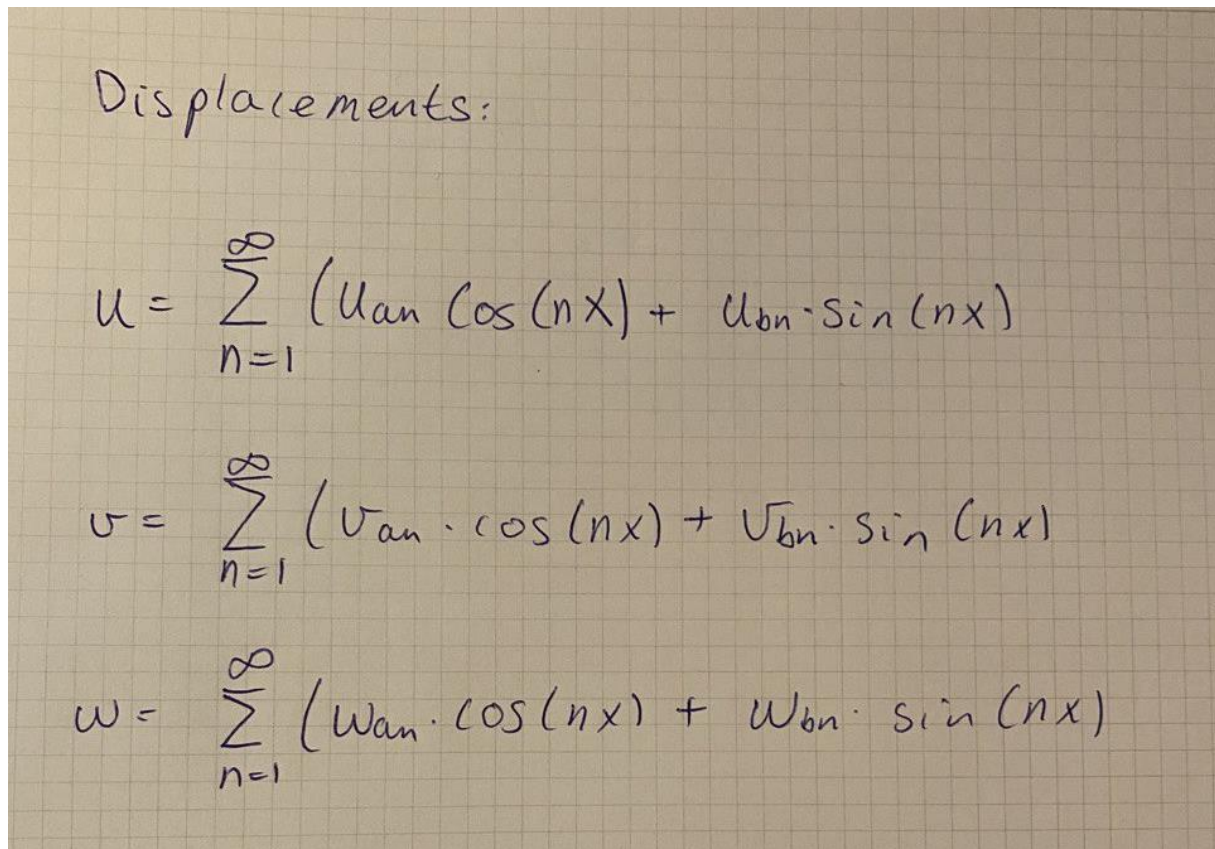 Displacements:
u = ∑_{n=1}^{∞} (u_{an} cos(nx) + u_{bn} · sin(nx)
v = ∑_{n=1}^{∞} (v_{an} · cos(nx) + v_{bn} · sin(nx)
w = ∑_{n=1}^{∞} (w_{an} · cos(nx) + w_{bn} · sin(nx)